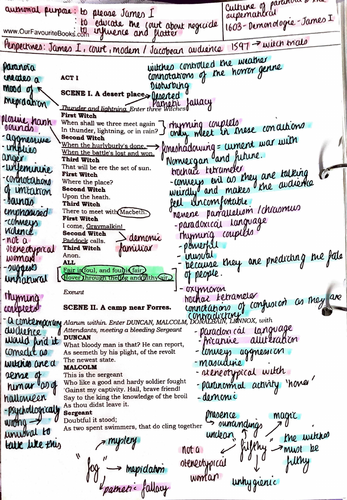 authorial purpose: to please James I
to educate the court about regicide
to influence and flatter
www.OurFavouriteBooks.com
culture of paranoia + the supernatural
1603 - Demonologie - James I
Perspectives: James I, court, modern / Jacobean audience
1597 → witch trials
paranoia
creates a
mood of
trepidation
witches controlled the weather
connotations of the horror genre
Disturbing
Deserted
Pathetic fallacy
ACT I
SCENE I. A desert place.
Thunder and lightning. Enter three Witches
First Witch
When shall we three meet again
In thunder, lightning, or in rain?
Second Witch
When the hurlyburly's done,
When the battle's lost and won.
Third Witch
That will be ere the set of sun.
First Witch
Where the place?
Second Witch
Upon the heath.
Third Witch
There to meet with Macbeth.
First Witch
I come, Graymalkin!
Second Witch
Paddock calls.
Third Witch
Anon.
ALL
Fair is foul, and foul is fair:
Hover through the fog and filthy air.
Exeunt
plosive harsh
sounds
- aggressive
- implies
anger
- unfeminine
- connotations
of irritation
- sounds
emphasised
- conveys
violence
- not a
stereotypical
woman
- suggest
unnatural
rhyming
couplets
- a contemporary
audience
would find it
comedic as
witches are a
sense of
humour
halloween
- psychologically
wrong →
unusual to
talk like this
rhyming couplets
only meet in these conditions
foreshadowing = current war with
Norwegan and future.
trochaic tetrameter
- conveys evil as they are talking
weirdly and makes the audience
feel uncomfortable
reverse parallelism / chiasmus
- paradoxical language
- rhyming couplets
- powerful
- unusual
because they are predicting the fate
of people.
- oxymoron
trochaic tetrameter
- connotations of confusion as they are
contradictory
demonic
familiar
SCENE II. A camp near Forres.
Alarum within. Enter DUNCAN, MALCOLM, DONALBAIN, LENNOX, with
Attendants, meeting a bleeding Sergeant
DUNCAN
What bloody man is that? He can report,
As seemeth by his plight, of the revolt
The newest state.
MALCOLM
This is the sergeant
Who like a good and hardy soldier fought
'Gainst my captivity. Hail, brave friend!
Say to the king the knowledge of the broil
As thou didst leave it.
Sergeant
Doubtful it stood;
As two spent swimmers, that do cling together
- paradoxical language
- fricative alliteration
- conveys aggression
- masculine
- stereotypical witch
- paranormal activity 'hover'
- demonic
presence
surroundings
unclean
magic
filthy
the witches
must be
filthy
not a
stereotypical
woman
unhygienic
mystery
"fog"
trepidation
pathetic fallacy